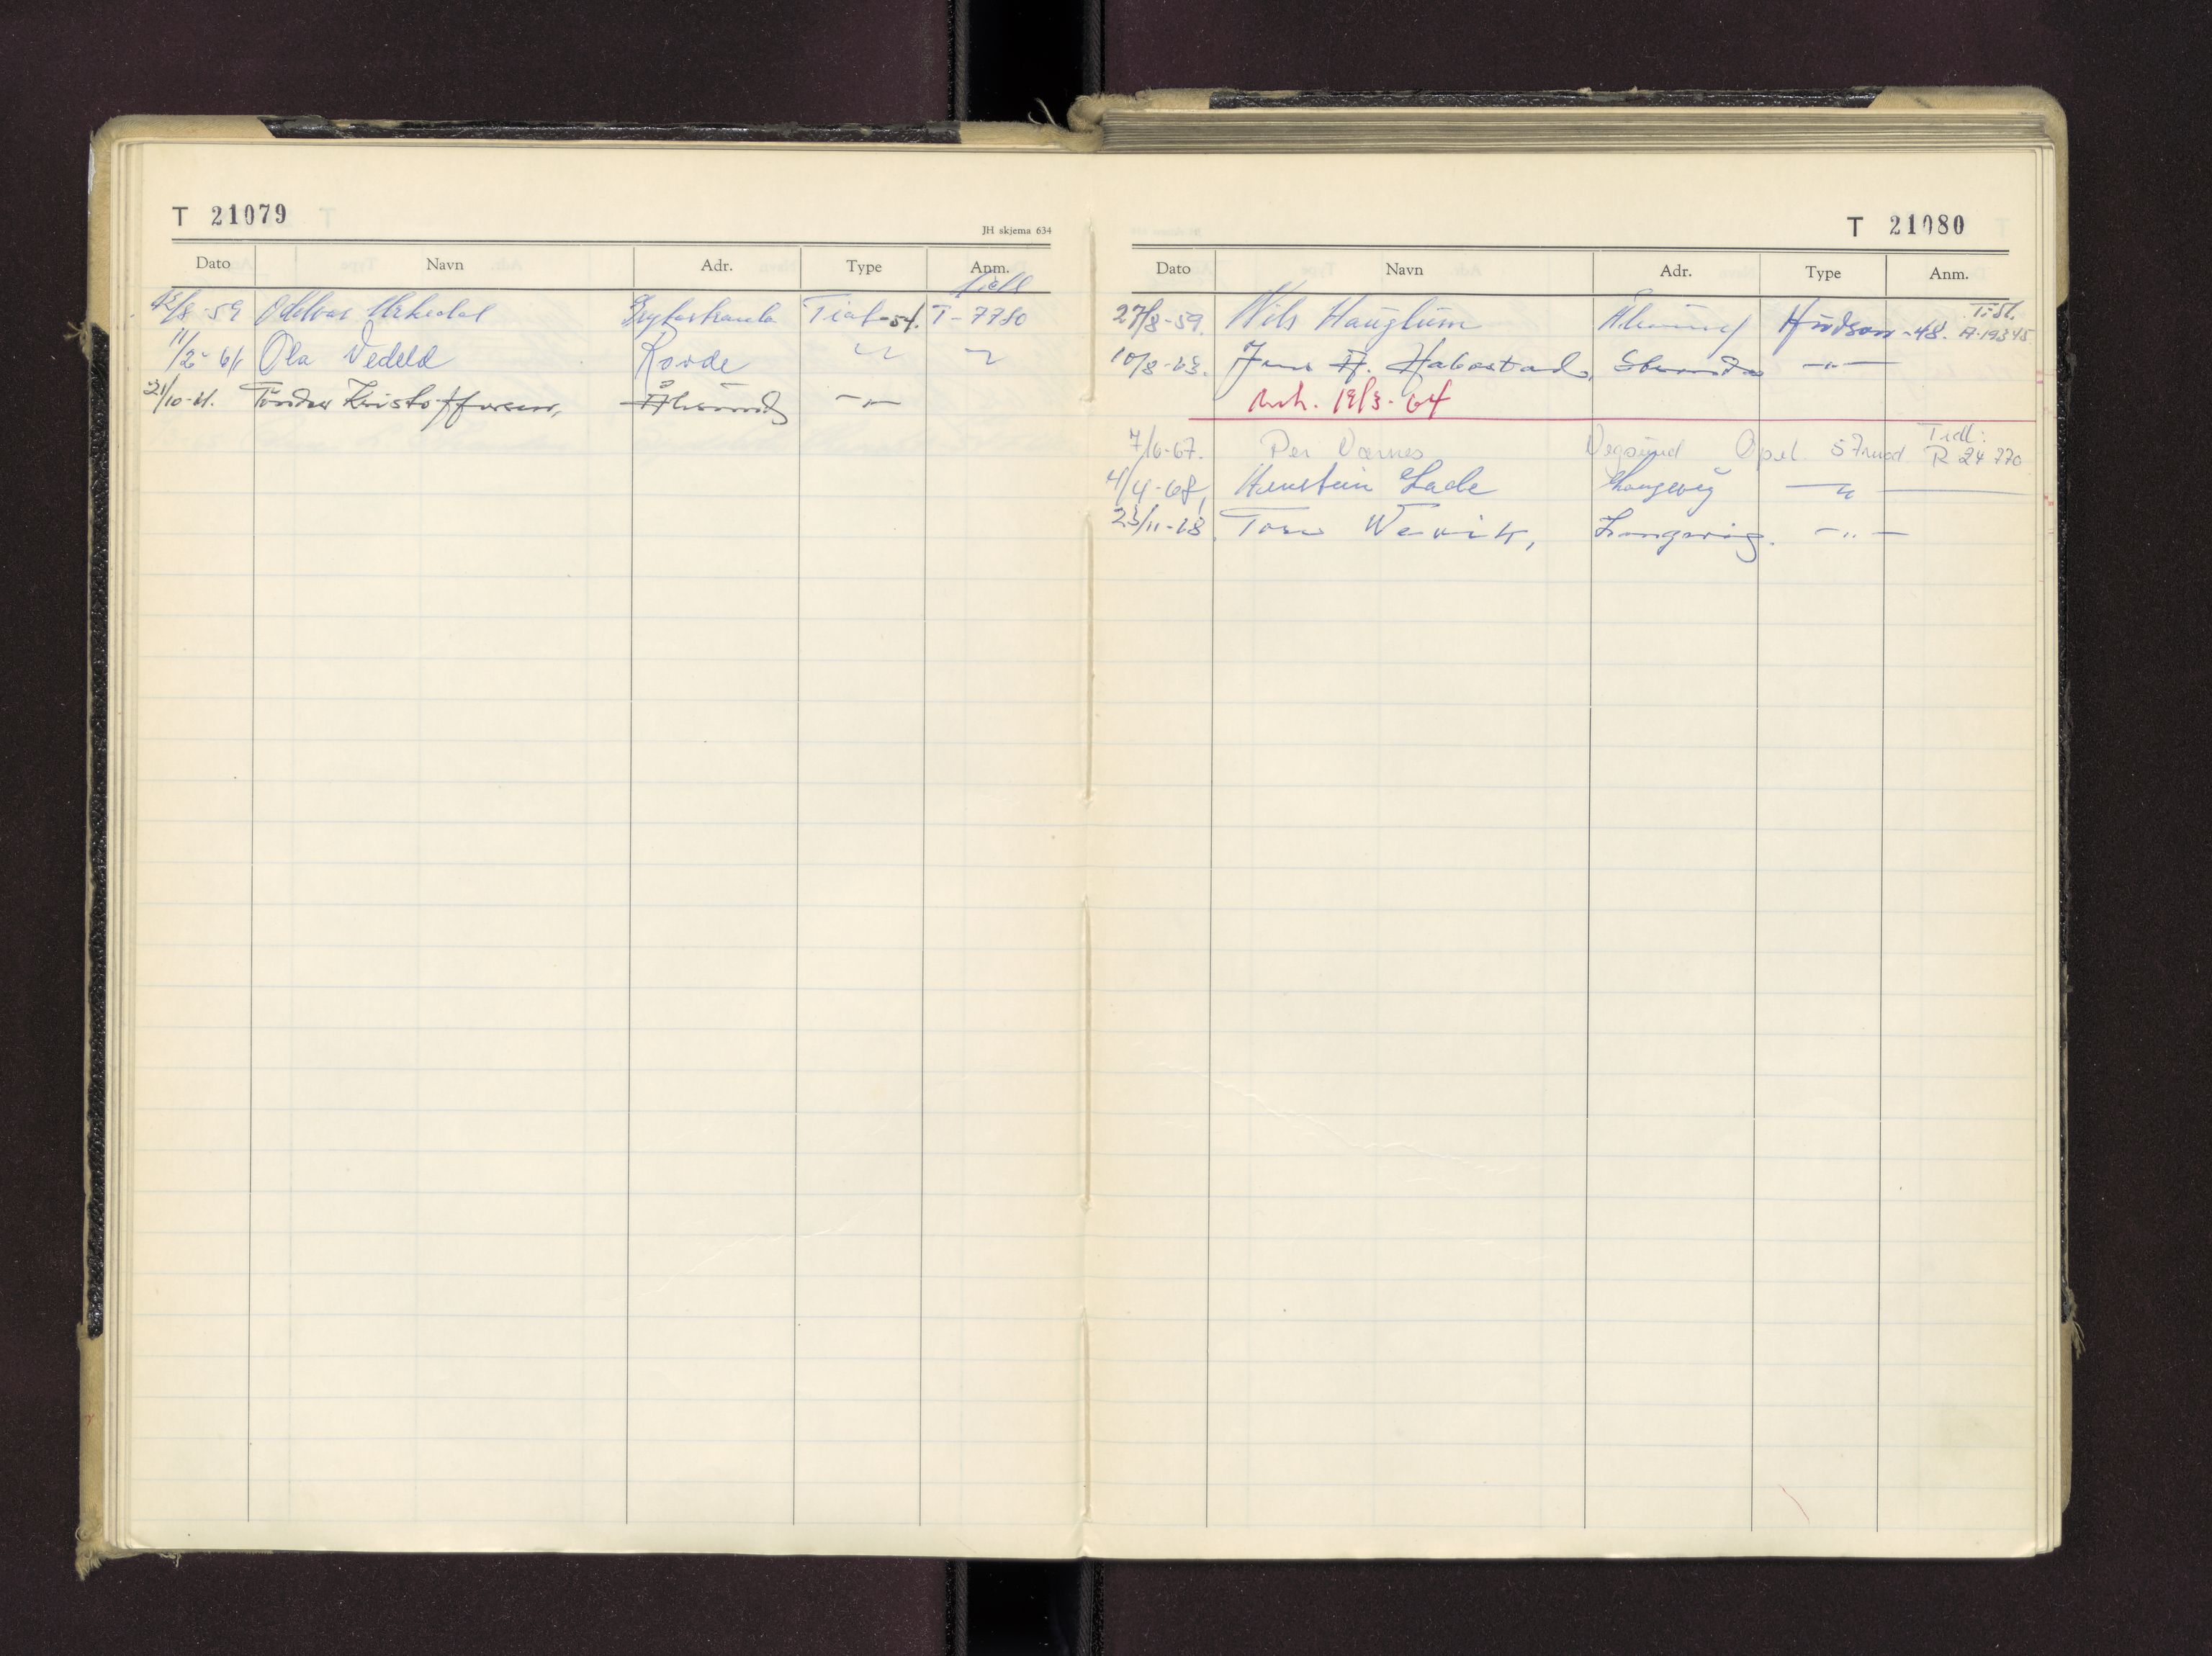 T 21079
JH skjema 634
Dato Navn Adr. Type Anm.
Tidl
12/8-59 Oddvar Urkedal Fiat-54. T-7780
11/2-61 Ola Vedeld Rovde -"- -"-
21/10-61. Kristoffersen, Ålesund -"-
T 21080
Dato Navn Adr. Type Anm.
Tidl.
27/8-59. Nils Hauglum Ålesund Hudson-48. A-19345
10/8-63. Jens A. Habostad, Stranda -"-
Avh. 19/3-64
Tidl:
7/6-67. Per Værnes Vegsund Opel 57mod R 24770
4/4-68, Lade Langevåg -"-
23/11-68. Tore Wervik, Langevåg. -"-